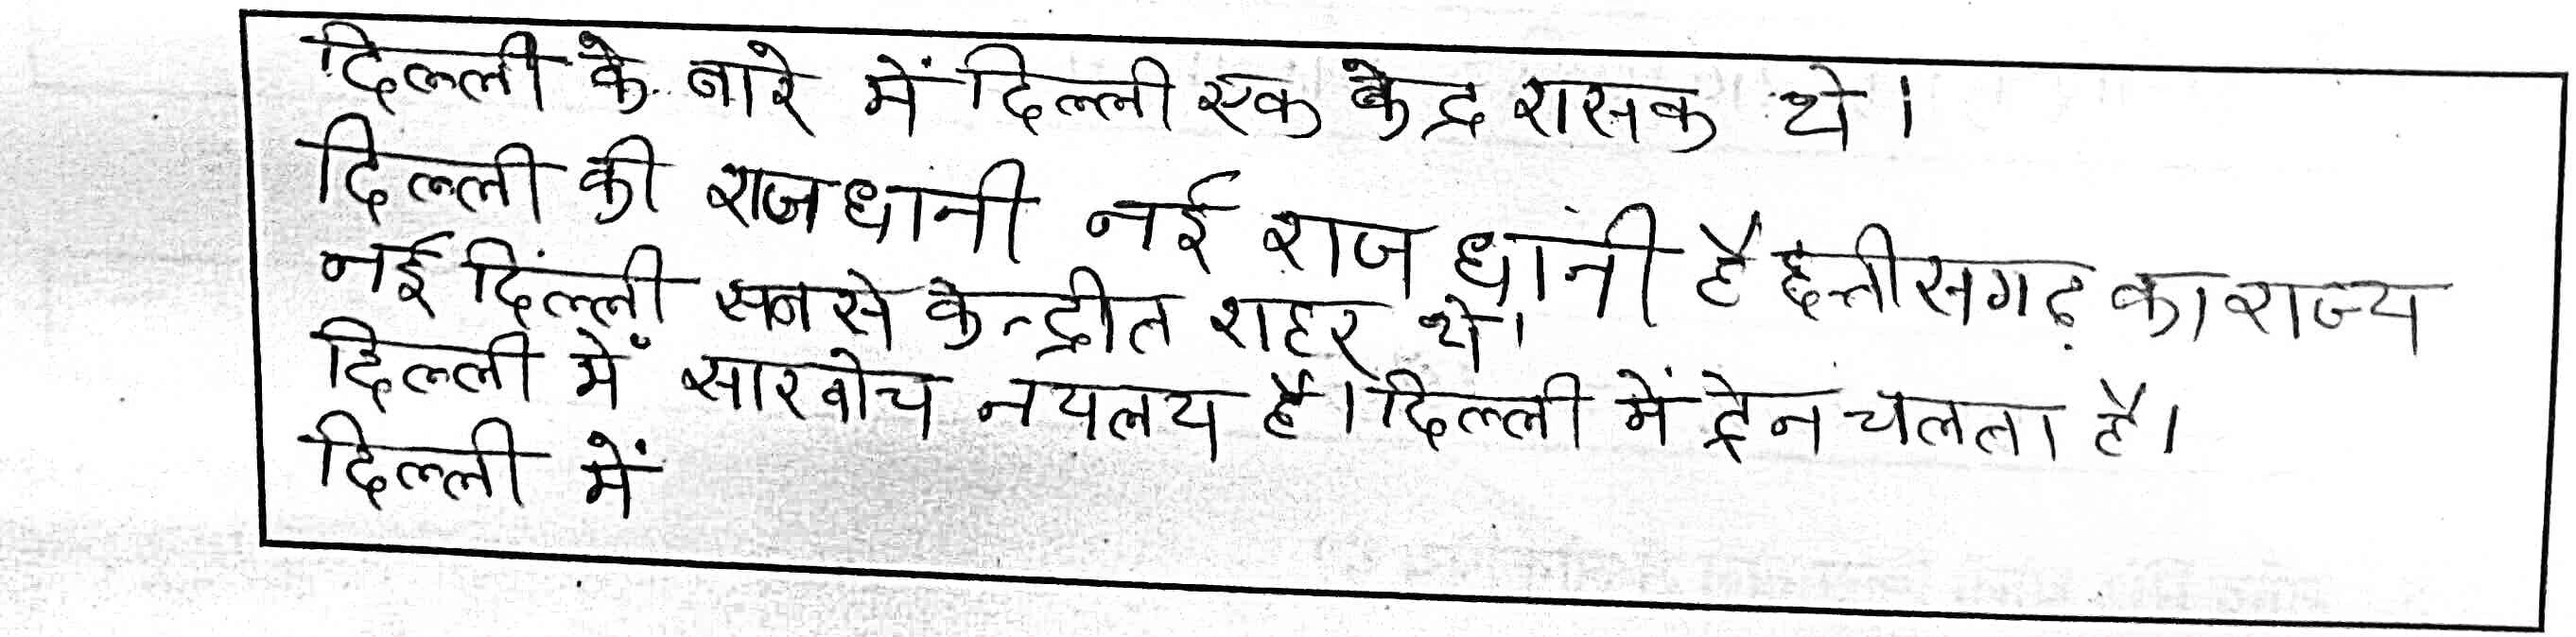 दिल्ली के बारे में दिल्ली एक केद्र शासक थे।
दिल्ली की राजधानी नई राज धानी है छत्तीसगढ़ का राज्य
नई दिल्ली सबसे केन्द्रीत शहर थे।
दिल्ली में सारवोच नयलय है। दिल्ली में ट्रेन चलता है।
दिल्ली में